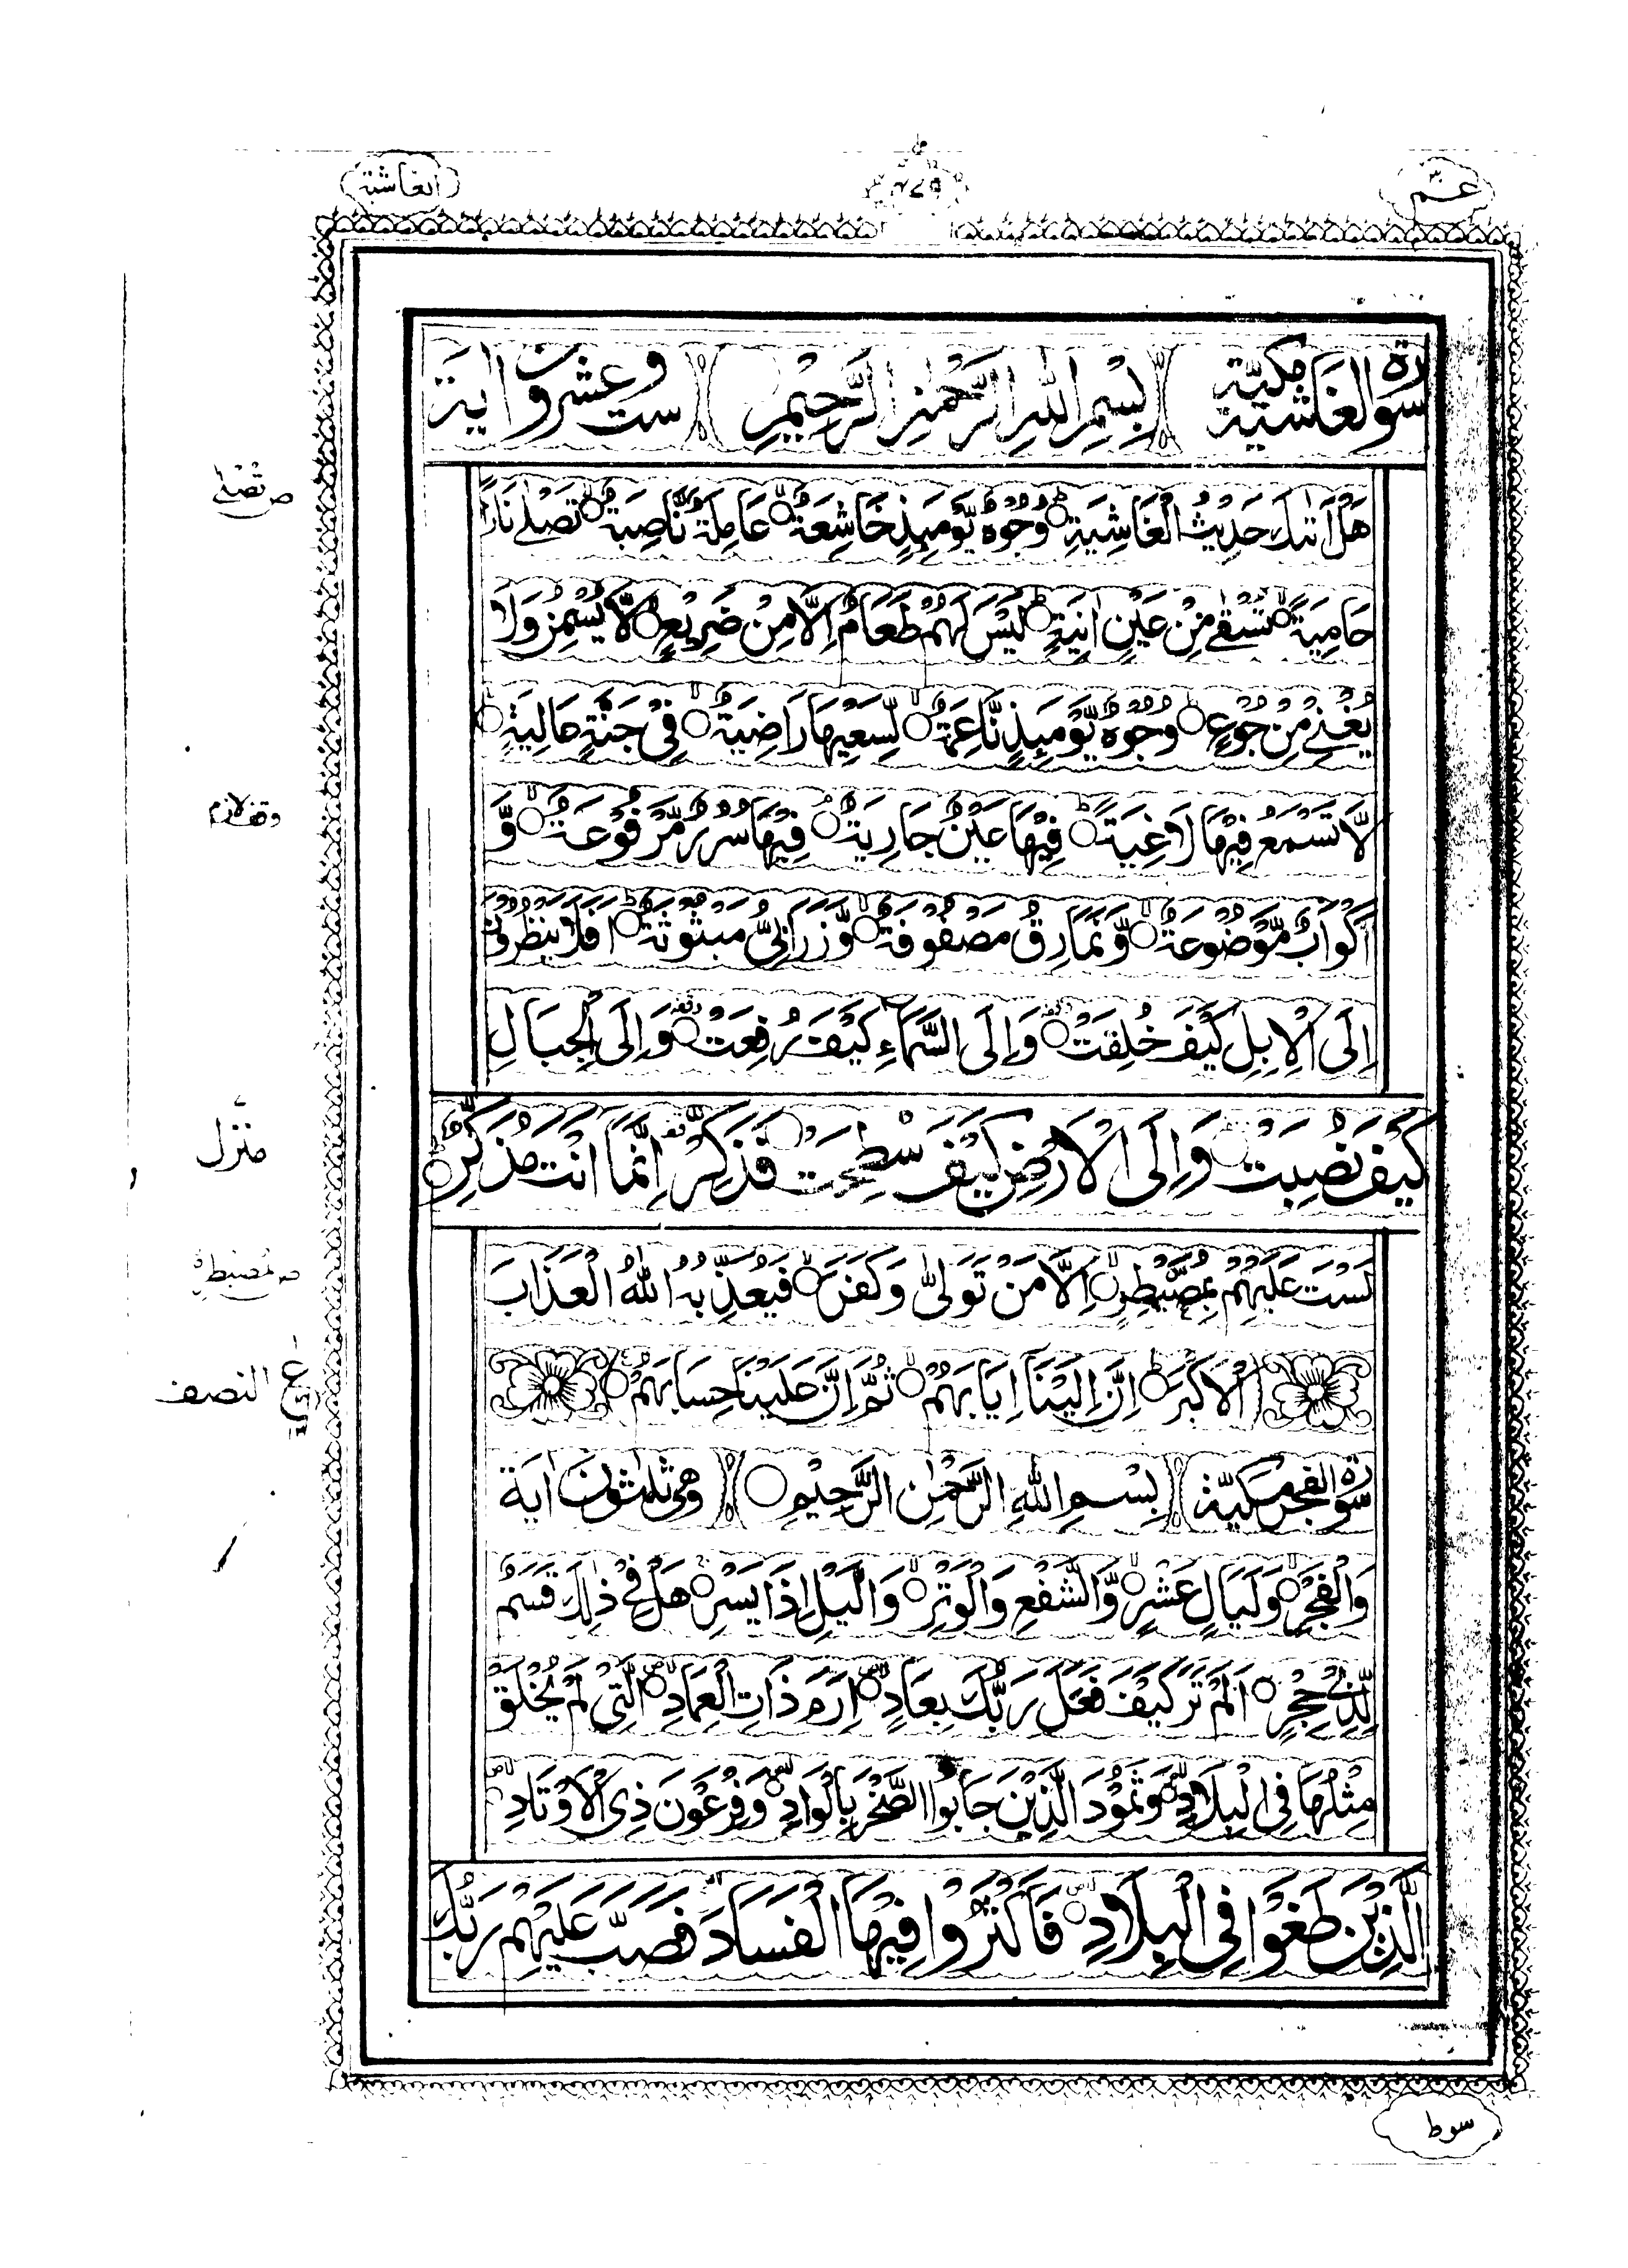 عمّ
الغاشية
سورة الغاشية مكية بِسْمِ اللهِ الرَّحْمٰنِ الرَّحِيْمِ ست وعشرون اية
هَلْ اَتٰىكَ حَدِيْثُ الْغَاشِيَةِ وُجُوْهٌ يَّوْمَىِٕذٍ خَاشِعَةٌ عَامِلَةٌ نَّاصِبَةٌ تَصْلٰى نَارًا
حَامِيَةً تُسْقٰى مِنْ عَيْنٍ اٰنِيَةٍ لَيْسَ لَهُمْ طَعَامٌ اِلَّا مِنْ ضَرِيْعٍ لَّا يُسْمِنُ وَلَا
يُغْنِيْ مِنْ جُوْعٍ وُجُوْهٌ يَّوْمَىِٕذٍ نَّاعِمَةٌ لِّسَعْيِهَا رَاضِيَةٌ فِيْ جَنَّةٍ عَالِيَةٍ
لَّا تَسْمَعُ فِيْهَا لَاغِيَةً فِيْهَا عَيْنٌ جَارِيَةٌ فِيْهَا سُرُرٌ مَّرْفُوْعَةٌ وَّ
اَكْوَابٌ مَّوْضُوْعَةٌ وَّنَمَارِقُ مَصْفُوْفَةٌ وَّزَرَابِيُّ مَبْثُوْثَةٌ اَفَلَا يَنْظُرُوْنَ
اِلَى الْاِبِلِ كَيْفَ خُلِقَتْ وَاِلَى السَّمَاءِ كَيْفَ رُفِعَتْ وَاِلَى الْجِبَالِ
كَيْفَ نُصِبَتْ وَاِلَى الْاَرْضِ كَيْفَ سُطِحَتْ فَذَكِّرْ اِنَّمَا اَنْتَ مُذَكِّرٌ
لَسْتَ عَلَيْهِمْ بِمُصَيْطِرٍ اِلَّا مَنْ تَوَلّٰى وَكَفَرَ فَيُعَذِّبُهُ اللهُ الْعَذَابَ
الْاَكْبَرَ اِنَّ اِلَيْنَا اِيَابَهُمْ ثُمَّ اِنَّ عَلَيْنَا حِسَابَهُمْ
سورة الفجر مكية بِسْمِ اللهِ الرَّحْمٰنِ الرَّحِيْمِ وهي ثلثون اية
وَالْفَجْرِ وَلَيَالٍ عَشْرٍ وَّالشَّفْعِ وَالْوَتْرِ وَالَّيْلِ اِذَا يَسْرِ هَلْ فِيْ ذٰلِكَ قَسَمٌ
لِّذِيْ حِجْرٍ اَلَمْ تَرَ كَيْفَ فَعَلَ رَبُّكَ بِعَادٍ اِرَمَ ذَاتِ الْعِمَادِ الَّتِيْ لَمْ يُخْلَقْ
مِثْلُهَا فِى الْبِلَادِ وَثَمُوْدَ الَّذِيْنَ جَابُوا الصَّخْرَ بِالْوَادِ وَفِرْعَوْنَ ذِى الْاَوْتَادِ
الَّذِيْنَ طَغَوْا فِى الْبِلَادِ فَاَكْثَرُوْا فِيْهَا الْفَسَادَ فَصَبَّ عَلَيْهِمْ رَبُّكَ
تصلى
وقف لازم
منزل
النصف
سوط